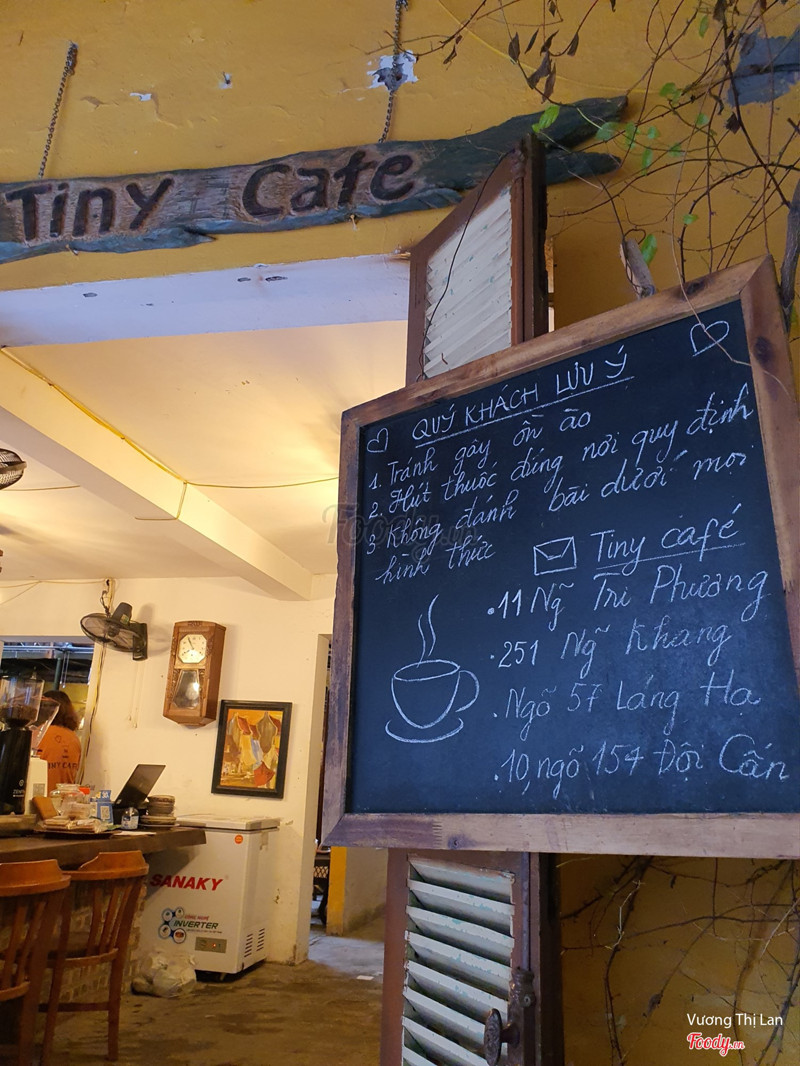 Tiny Cafe
QUÝ KHÁCH LƯU Ý
1. Tránh gây ồn ào
2. Hút thuốc đúng nơi quy định
3 Không đánh bài dưới mọi
hình thức
Tiny café
.11 Ng̃ Tri Phương
.251 Ng̃ Khang
.Ngõ 57 Láng Hạ
.10, ngõ 154 Đội Cấn
SANAKY
INVERTER
Foody.vn
Vương Thị Lan
Foody.vn